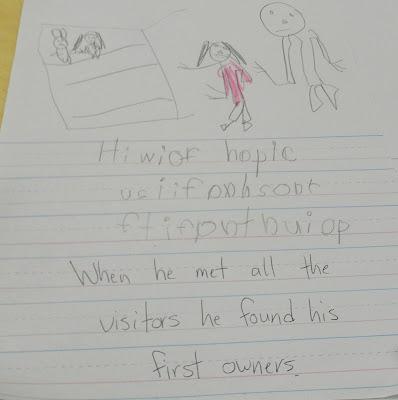 Hiwior hopic
usiifonhsont
ftifpntbuiop
When he met all the
visitors he found his
first owners.